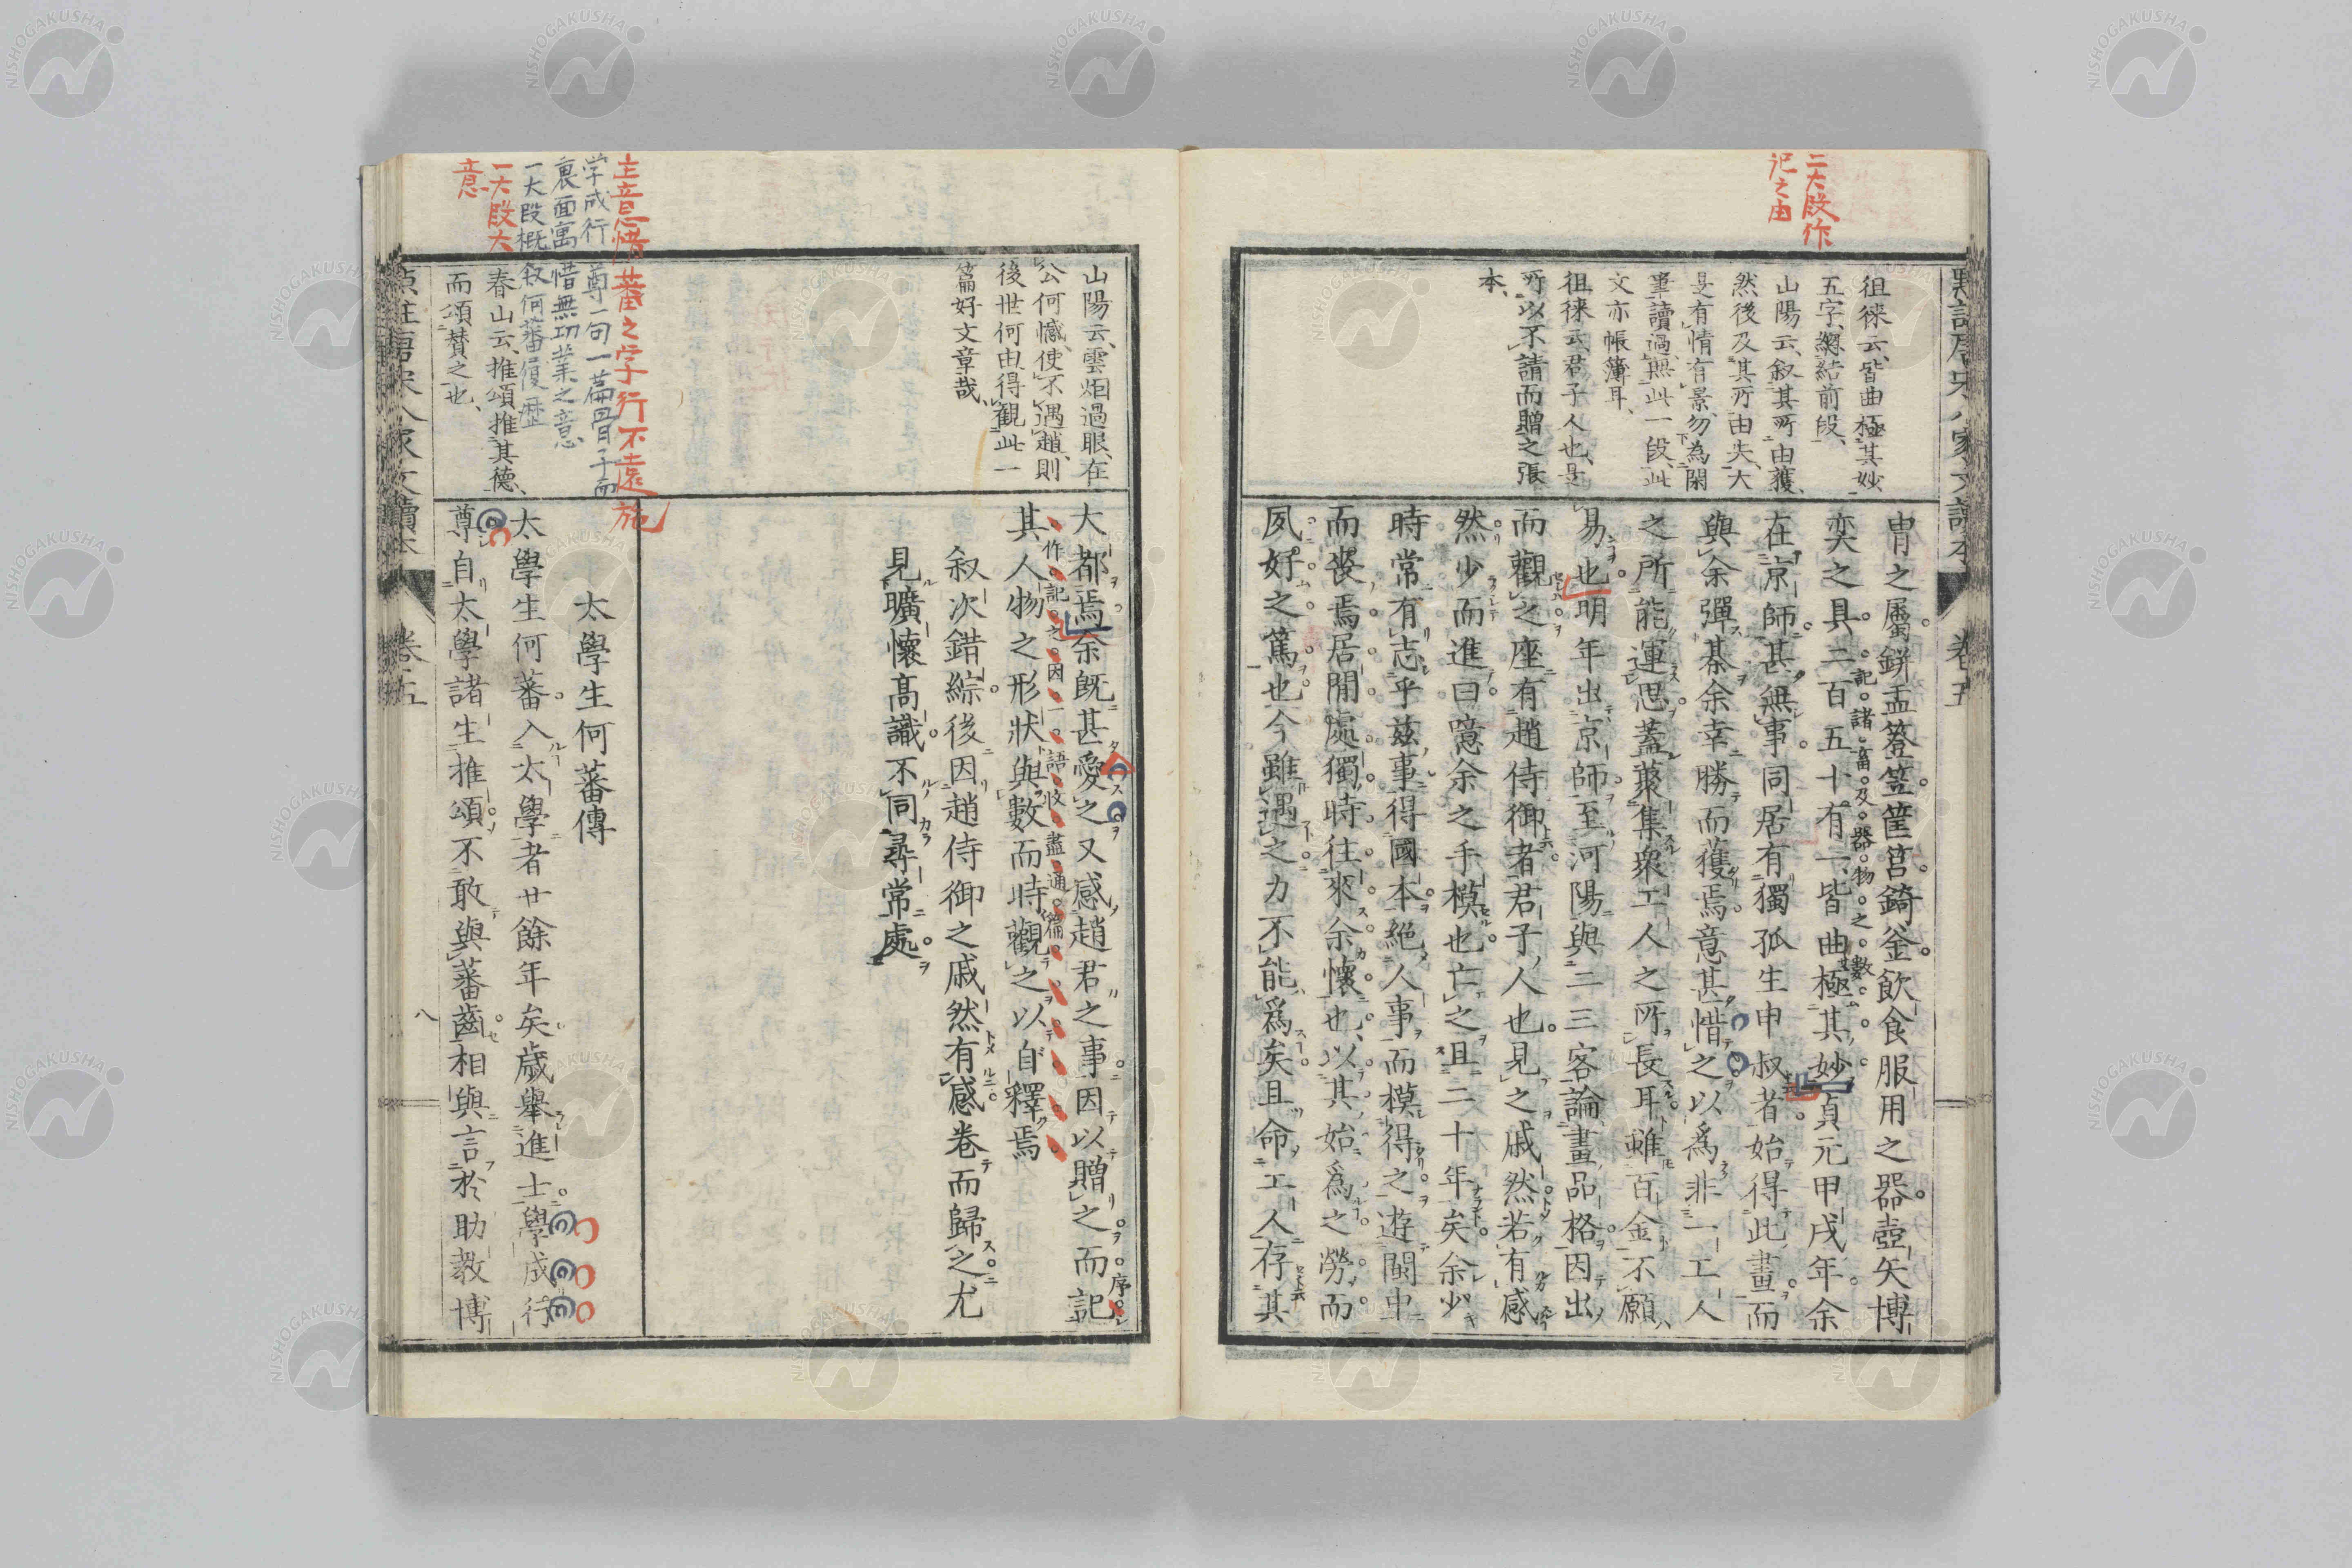 二大段作
記之由
徂徠云、皆曲極其妙
五字、總結前段、
山陽云、叙其所由獲、
然後及其所由失、大
是有情有景、勿為閑
筆讀過、無此一段、此
文亦帳簿耳、
徂徠云、君子人也、是
所以不請而贈之張
本、
冑之屬缾盂簦笠筐筥錡釜飲食服用之器壺矢博
奕之具二百五十有一皆曲極其妙貞元甲戌年余
記諸畜及器物之數
在京師甚無事同居有獨孤生申叔者始得此畫而
與余彈棊余幸勝而獲焉意甚惜之以爲非一工人
之所能運思蓋藂集衆工人之所長耳雖百金不願
易也明年出京師至河陽與二三客論畫品格因出
而觀之座有趙侍御者君子人也見之戚然若有感
然少而進曰噫余之手模也亡之且二十年矣余少
時常有志乎茲事得國本絶人事而模得之遊閩中
而喪焉居閒處獨時往來余懷也以其始爲之勞而
夙好之篤也今雖遇之力不能爲矣且命工人存其
卷五
山陽云、雲烟過眼、在
公何憾、使不遇趙、則
後世何由得觀此一
篇好文章哉、
大都焉余旣甚愛之又感趙君之事因以贈之而記
其人物之形狀與數而時觀之以自釋焉
作記之因一語收盡通篇
序
叙次錯綜後因趙侍御之戚然有感卷而歸之尤
見曠懷高識不同尋常處
主意惜蕃之字行不遠施
学成行尊一句一篇骨子而
裏面寓惜無功業之意
一大段概叙何蕃履歴
一大段大
意
春山云、推頌、推其德、
而頌賛之也、
太學生何蕃傳
太學生何蕃入太學者廿餘年矣歲舉進士學成行
尊自太學諸生推頌不敢與蕃齒相與言於助教博
卷五
八
NISHOGAKUSHA